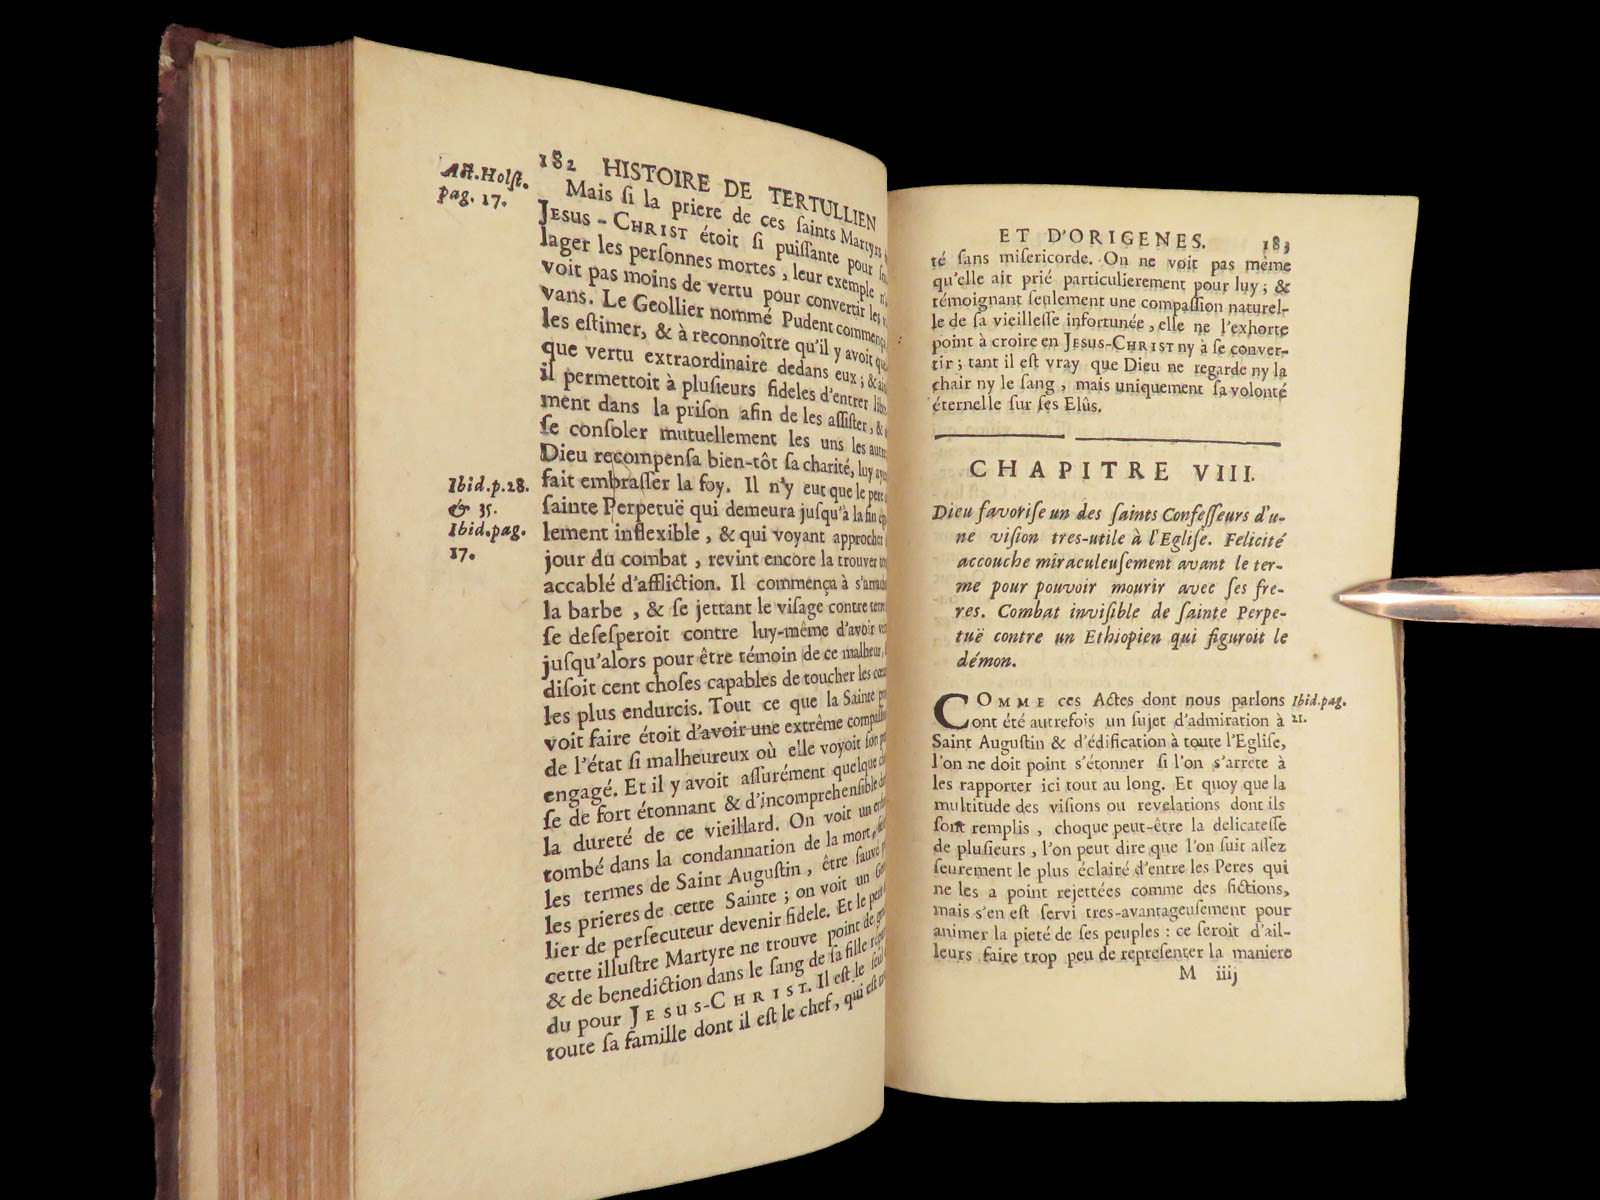 182 HISTOIRE DE TERTULLIEN
Act. Holſt.
pag. 17.
Mais ſi la priere de ces ſaints Martyrs
JESUS-CHRIST étoit ſi puiſſante pour
lager les perſonnes mortes, leur exemple
voit pas moins de vertu pour convertir les
vans. Le Geollier nommé Pudent
les eſtimer, & à reconnoître qu'il y avoit
que vertu extraordinaire dedans eux; &
il permettoit à pluſieurs fideles d'entrer
ment dans la priſon afin de les aſſiſter, &
ſe conſoler mutuellement les uns les
Dieu recompenſa bien-tôt ſa charité, luy
Ibid. p. 28.
& 35.
fait embraſſer la foy. Il n'y eut que le pere
ſainte Perpetuë qui demeura juſqu'à la fin
Ibid. pag.
17.
lement inflexible, & qui voyant approcher
jour du combat, revint encore la trouver
accablé d'affliction. Il commença à
la barbe, & ſe jettant le viſage contre
ſe deſeſperoit contre luy-même d'avoir
juſqu'alors pour être témoin de ce malheur,
diſoit cent choſes capables de toucher les
les plus endurcis. Tout ce que la Sainte
voit faire étoit d'avoir une extrême
de l'état ſi malheureux où elle voyoit ſon
engagé. Et il y avoit aſſurément quelque
ſe de fort étonnant & d'incomprehenſible
la dureté de ce vieillard. On voit un
tombé dans la condannation de la mort,
les termes de Saint Auguſtin, être ſauvé
les prieres de cette Sainte; on voit un
lier de perſecuteur devenir fidele. Et le
cette illuſtre Martyre ne trouve point de
& de benediction dans le ſang de ſa fille
du pour JESUS-CHRIST. Il eſt le ſeul
toute ſa famille dont il eſt le chef, qui eſt
ET D'ORIGENES. 183
té ſans miſericorde. On ne voit pas même
qu'elle ait prié particulierement pour luy; &
témoignant ſeulement une compaſſion naturel-
le de ſa vieilleſſe infortunée, elle ne l'exhorte
point à croire en JESUS-CHRIST ny à ſe conver-
tir; tant il eſt vray que Dieu ne regarde ny la
chair ny le ſang, mais uniquement ſa volonté
éternelle ſur ſes Elûs.
CHAPITRE VIII.
Dieu favoriſe un des ſaints Confeſſeurs d'u-
ne viſion tres-utile à l'Egliſe. Felicité
accouche miraculeuſement avant le ter-
me pour pouvoir mourir avec ſes fre-
res. Combat inviſible de ſainte Perpe-
tuë contre un Ethiopien qui figuroit le
démon.
COMME ces Actes dont nous parlons
Ibid. pag.
21.
ont été autrefois un ſujet d'admiration à
Saint Auguſtin & d'édification à toute l'Egliſe,
l'on ne doit point s'étonner ſi l'on s'arrête à
les rapporter ici tout au long. Et quoy que la
multitude des viſions ou revelations dont ils
ſont remplis, choque peut-être la delicateſſe
de pluſieurs, l'on peut dire que l'on ſuit aſſez
ſeurement le plus éclairé d'entre les Peres qui
ne les a point rejettées comme des fictions,
mais s'en eſt ſervi tres-avantageuſement pour
animer la pieté de ſes peuples: ce ſeroit d'ail-
leurs faire trop peu de repreſenter la maniere
M iiij